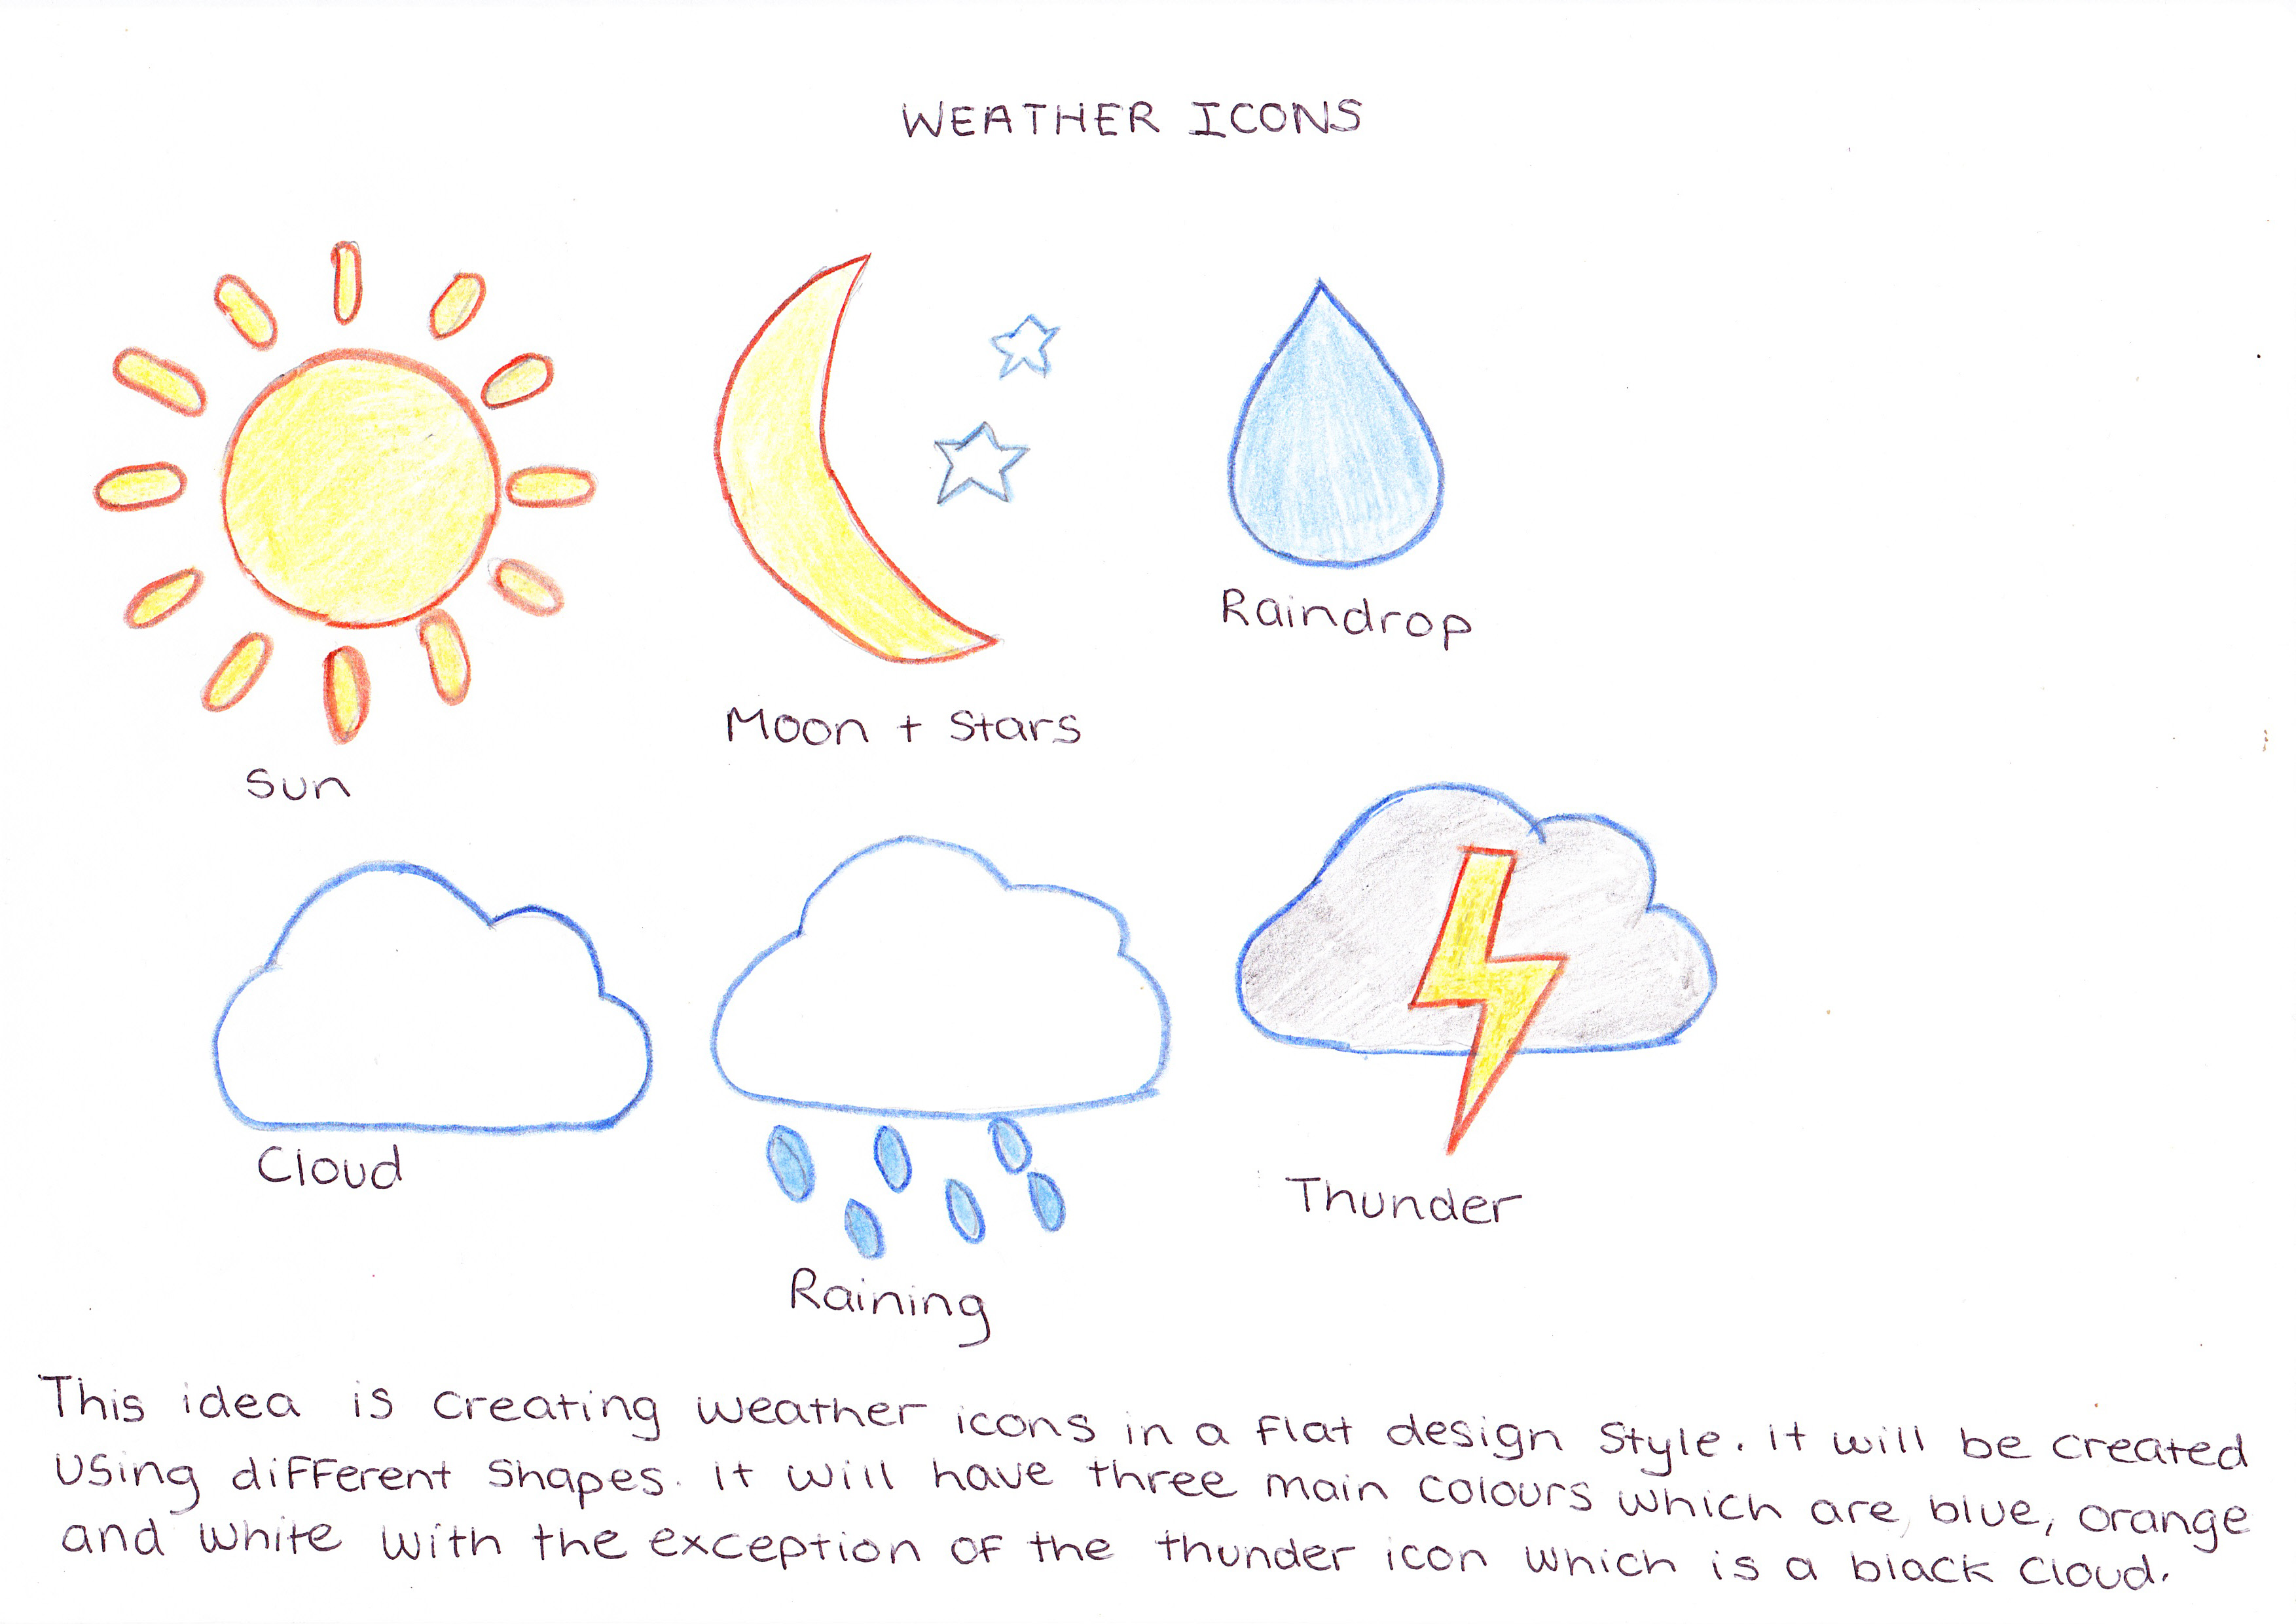 WEATHER ICONS
Sun
Moon + Stars
Raindrop
Cloud
Raining
Thunder
This idea is creating weather icons in a flat design style. it will be created
using different shapes. it will have three main colours which are blue, orange
and white with the exception of the thunder icon which is a black cloud.